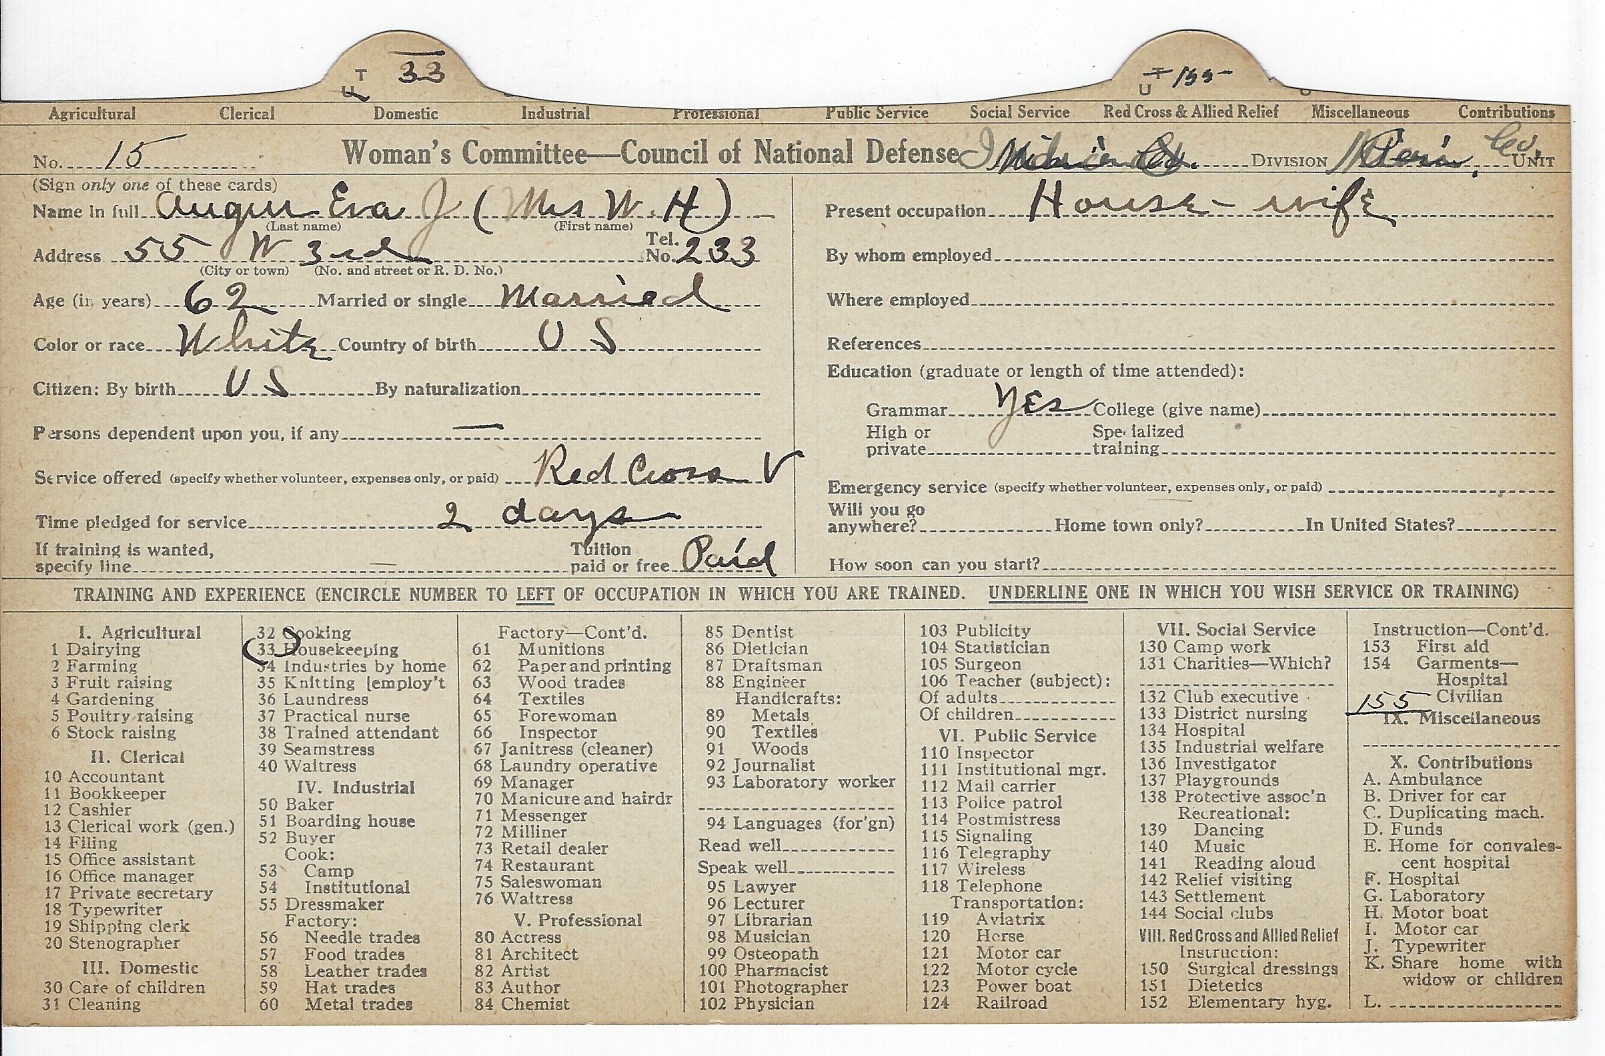 T
U
33
T
U
155
Agricultural Clerical Domestic Industrial Professional Public Service Social Service Red Cross & Allied Relief Miscellaneous Contributions
No. 15 Woman's Committee—Council of National Defense DIVISION Co. UNIT
(Sign only one of these cards)
Name in full Augur Eva J (Mrs W. H)
(Last name) (First name)
Address 55 W 3rd Tel. No. 233
(City or town) (No. and street or R. D. No.)
Age (in years) 62 Married or single Married
Color or race White Country of birth U S
Citizen: By birth U S By naturalization
Persons dependent upon you, if any —
Service offered (specify whether volunteer, expenses only, or paid) Red Cross V
Time pledged for service 2 days
If training is wanted, specify line — Tuition paid or free Paid
Present occupation House-wife
By whom employed
Where employed
References
Education (graduate or length of time attended):
Grammar Yes College (give name)
High or private Specialized training
Emergency service (specify whether volunteer, expenses only, or paid)
Will you go anywhere? Home town only? In United States?
How soon can you start?
TRAINING AND EXPERIENCE (ENCIRCLE NUMBER TO LEFT OF OCCUPATION IN WHICH YOU ARE TRAINED. UNDERLINE ONE IN WHICH YOU WISH SERVICE OR TRAINING)
I. Agricultural
1 Dairying
2 Farming
3 Fruit raising
4 Gardening
5 Poultry raising
6 Stock raising
II. Clerical
10 Accountant
11 Bookkeeper
12 Cashier
13 Clerical work (gen.)
14 Filing
15 Office assistant
16 Office manager
17 Private secretary
18 Typewriter
19 Shipping clerk
20 Stenographer
III. Domestic
30 Care of children
31 Cleaning
32 Cooking
33 Housekeeping
34 Industries by home
35 Knitting [employ't
36 Laundress
37 Practical nurse
38 Trained attendant
39 Seamstress
40 Waitress
IV. Industrial
50 Baker
51 Boarding house
52 Buyer
Cook:
53 Camp
54 Institutional
55 Dressmaker
Factory:
56 Needle trades
57 Food trades
58 Leather trades
59 Hat trades
60 Metal trades
Factory—Cont'd.
61 Munitions
62 Paper and printing
63 Wood trades
64 Textiles
65 Forewoman
66 Inspector
67 Janitress (cleaner)
68 Laundry operative
69 Manager
70 Manicure and hairdr
71 Messenger
72 Milliner
73 Retail dealer
74 Restaurant
75 Saleswoman
76 Waitress
V. Professional
80 Actress
81 Architect
82 Artist
83 Author
84 Chemist
85 Dentist
86 Dietician
87 Draftsman
88 Engineer
Handicrafts:
89 Metals
90 Textiles
91 Woods
92 Journalist
93 Laboratory worker
94 Languages (for'gn)
Read well
Speak well
95 Lawyer
96 Lecturer
97 Librarian
98 Musician
99 Osteopath
100 Pharmacist
101 Photographer
102 Physician
103 Publicity
104 Statistician
105 Surgeon
106 Teacher (subject):
Of adults
Of children
VI. Public Service
110 Inspector
111 Institutional mgr.
112 Mail carrier
113 Police patrol
114 Postmistress
115 Signaling
116 Telegraphy
117 Wireless
118 Telephone
Transportation:
119 Aviatrix
120 Horse
121 Motor car
122 Motor cycle
123 Power boat
124 Railroad
VII. Social Service
130 Camp work
131 Charities—Which?
132 Club executive
133 District nursing
134 Hospital
135 Industrial welfare
136 Investigator
137 Playgrounds
138 Protective assoc'n
Recreational:
139 Dancing
140 Music
141 Reading aloud
142 Relief visiting
143 Settlement
144 Social clubs
VIII. Red Cross and Allied Relief
Instruction:
150 Surgical dressings
151 Dietetics
152 Elementary hyg.
Instruction—Cont'd.
153 First aid
154 Garments—
Hospital
155 Civilian
IX. Miscellaneous
X. Contributions
A. Ambulance
B. Driver for car
C. Duplicating mach.
D. Funds
E. Home for convales-
cent hospital
F. Hospital
G. Laboratory
H. Motor boat
I. Motor car
J. Typewriter
K. Share home with
widow or children
L.